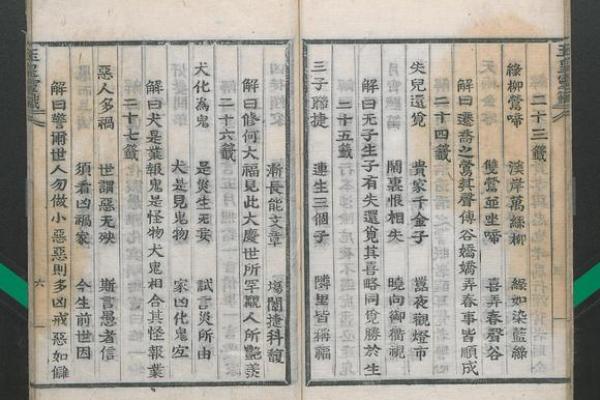 玉皇靈籤
二十三籤
綠柳鶯啼 溪岸萬絲柳 絲如染藍綠
雙鶯並坐啼 喜弄春聲谷
解曰遷喬之鶯其聲傳谷嬌嬌弄春事皆順成
二十四籤
失兒還覓 貴家千金子 夜觀燈市
鬧裏恨相失 曉向御街視
解曰无子生子有失還覓其喜略同覓勝於生
二十五籤
三子聯捷 連生三個子 隣里皆稱福
漸長能文章 塲闈捷科馥
解曰修何大福見此大慶世所罕覯人所艶羨
二十六籤
犬化為鬼 是災生无妄 試言災所由
犬是見鬼物 家凶化鬼宜
解曰犬是業報鬼是怪物犬鬼相合其怪報業
二十七籤
惡人多禍 世謂惡无殃 斯言愚者信
須看凶禍家 今生前世因
解曰警爾世人勿做小惡惡則多凶戒惡如讎
玉皇靈籤 六